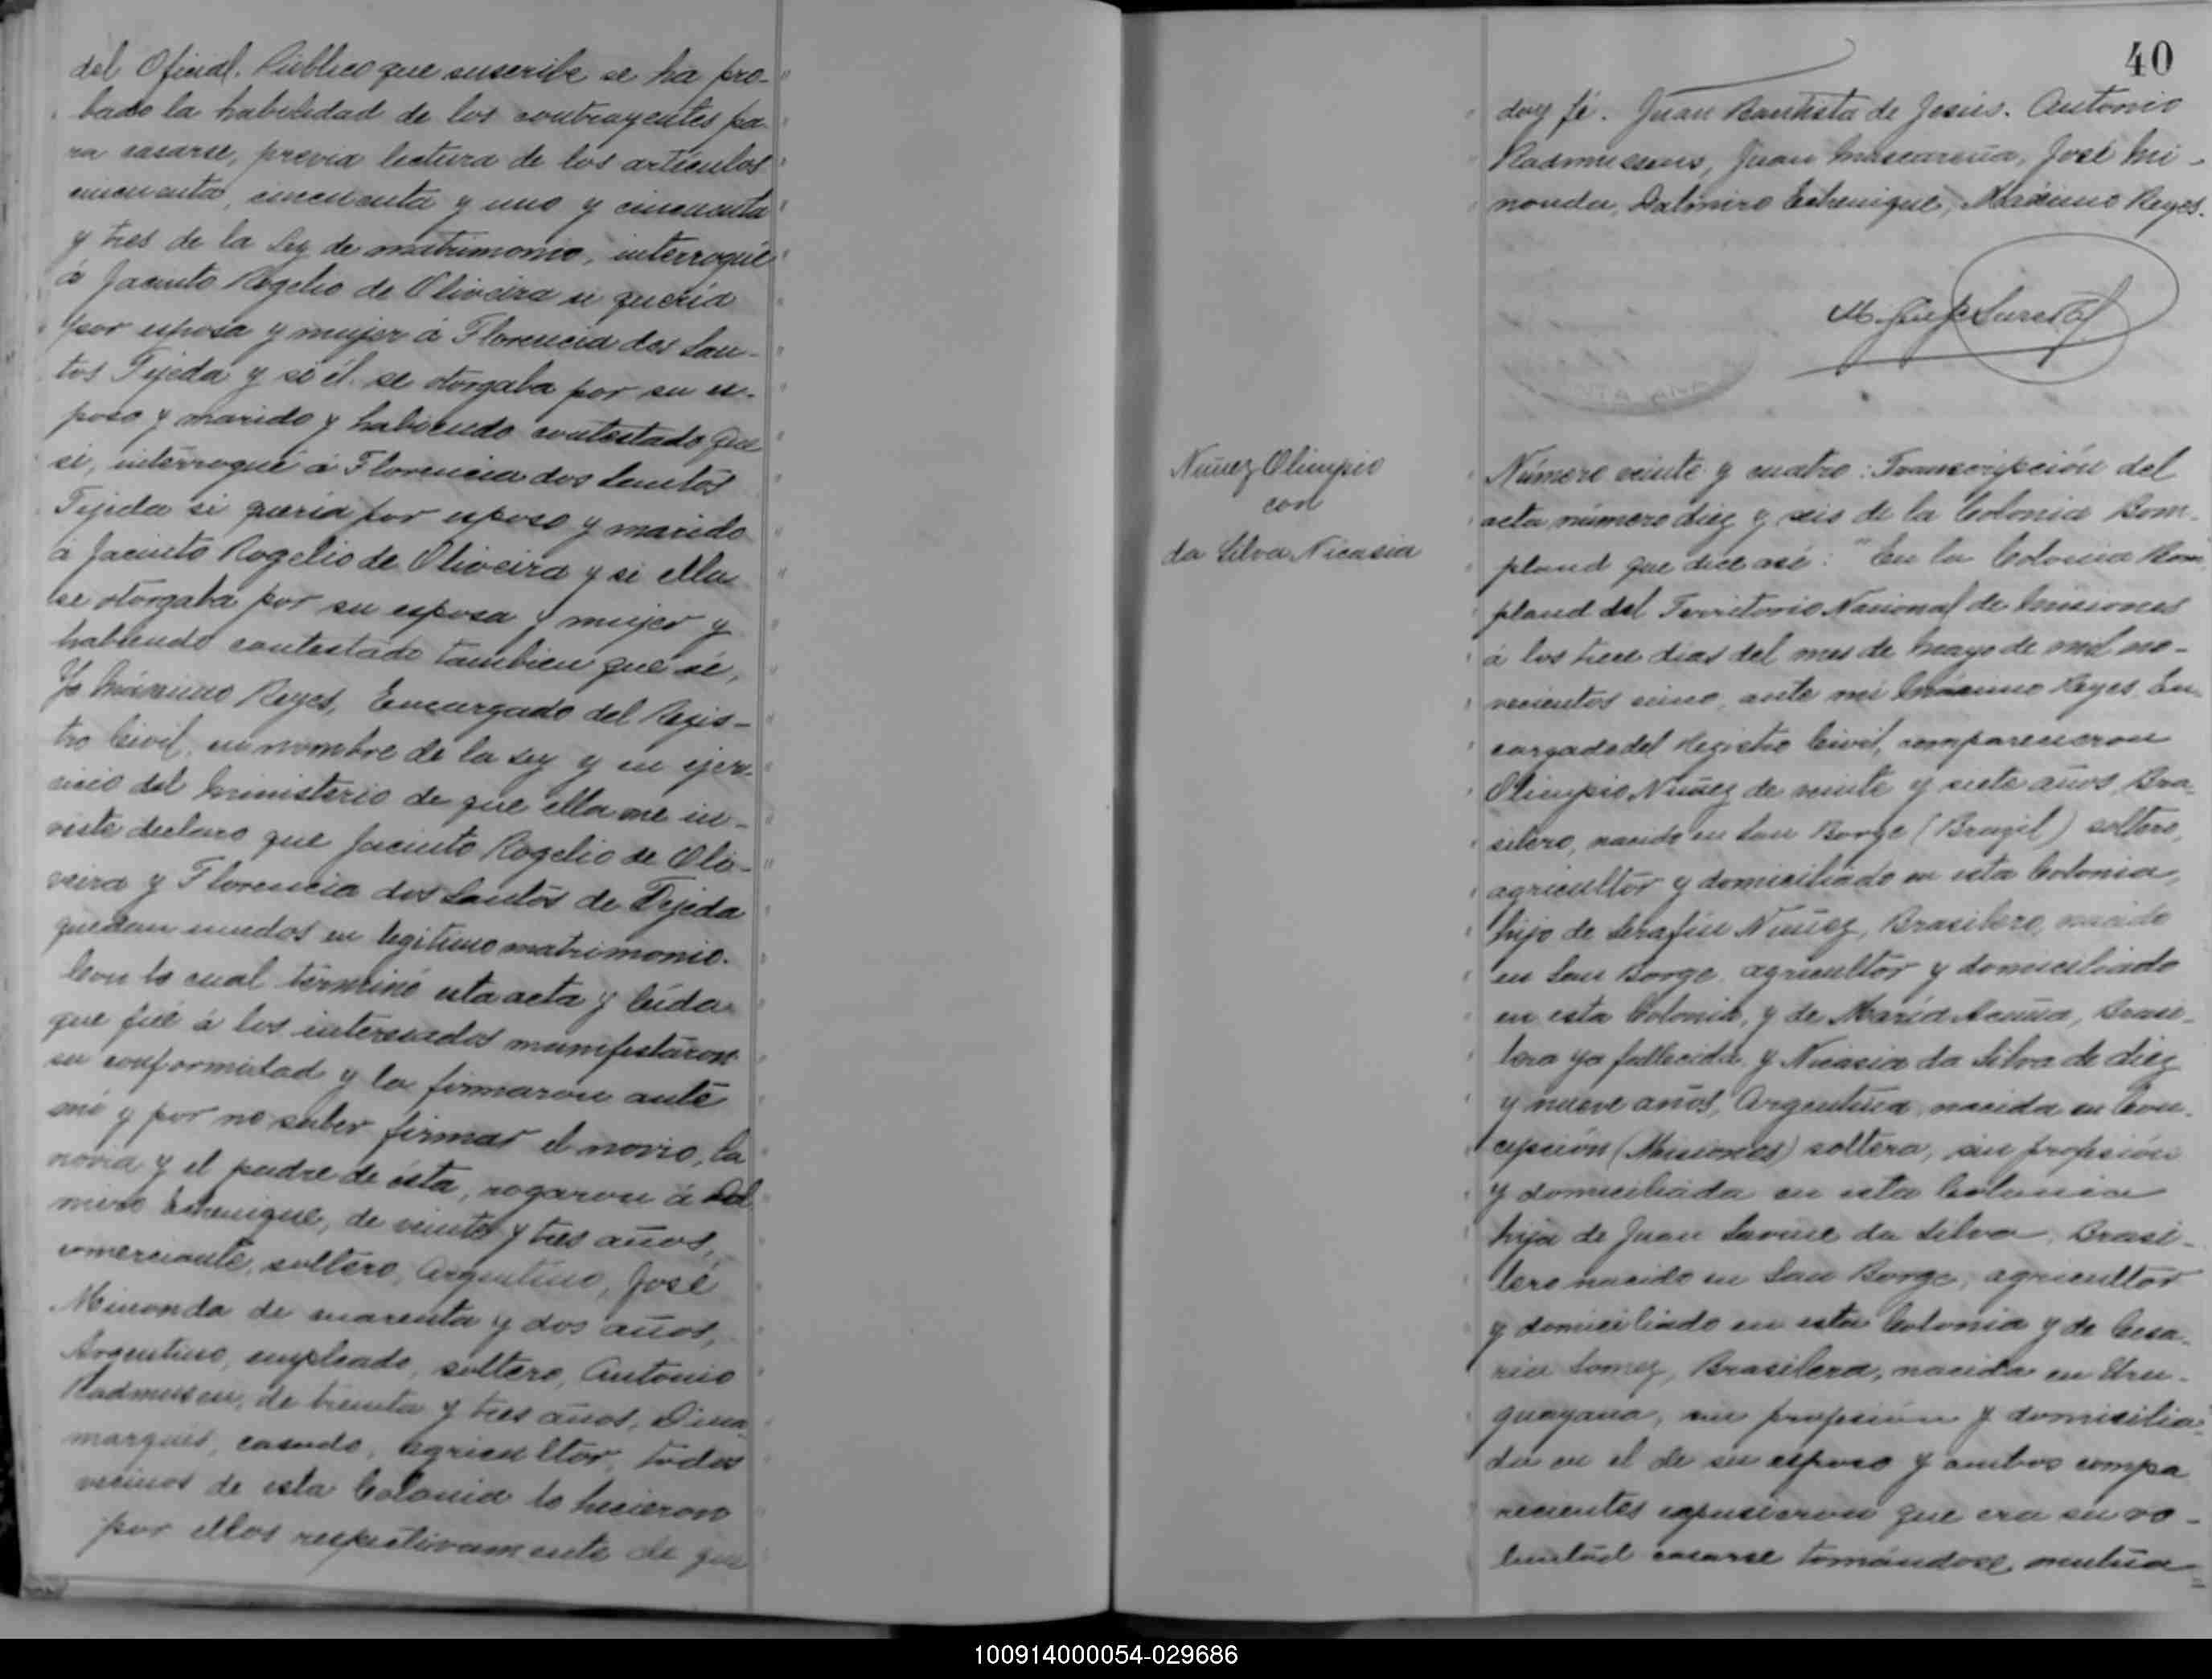 del Oficial. Público que suscribe se ha pro-
bado la habilidad de los contrayentes pa-
ra casarse, previa lectura de los artículos
cincuenta, cincuenta y uno y cincuenta
y tres de la Ley de matrimonio, interrogué
á Jacinto Rogelio de Oliveira si quería
por esposa y mujer á Florencia dos San-
tos Tejeda y si él se otorgaba por su es-
poso y marido y habiendo contestado que
si, interrogué á Florencia dos Santos
Tejeda si quería por esposo y marido
á Jacinto Rogelio de Oliveira y si ella
se otorgaba por su esposa y mujer y
habiendo contestado tambien que sí,
Yo Máximo Reyes, Encargado del Regis-
tro Civil, en nombre de la Ley y en ejer-
cicio del ministerio de que ella me in-
viste declaro que Jacinto Rogelio de Oli-
veira y Florencia dos Santos de Tejeda
quedan unidos en legítimo matrimonio.
Con lo cual terminé esta acta y leída
que fué á los interesados manifestaron
su conformidad y la firmaron ante
mí y por no saber firmar el novio, la
novia y el padre de ésta, rogaron á Dal
miro Echenique, de veinte y tres años,
comerciante, soltero, Argentino, José
Minonda de cuarenta y dos años,
Argentino, empleado, soltero, Antonio
Radmusen, de treinta y tres años, Dina
marqués, casado, agricultor, todos
vecinos de esta Colonia lo hicieron
por ellos respectivamente de que
40
doy fé. Juan Bautista de Jesús. Antonio
Rasmussens, Juan Mascareña, José Mi-
nonda, Dalmiro Echenique, Máximo Reyes.
Nuñez Olimpio
con
da Silva Nicasia
Número veinte y cuatro: Transcripción del
acta número diez y seis de la Colonia Bom-
pland que dice así: "En la Colonia Bom
pland del Territorio Nacional de Misiones
á los trece dias del mes de Mayo de mil no-
vecientos cinco, ante mí Máximo Reyes En-
cargado del Registro Civil, comparecieron
Olimpio Nuñez de veinte y siete años, Bra-
silero, nacido en San Borge (Brazil) soltero,
agricultor y domiciliado en esta Colonia,
hijo de Serafin Nuñez, Brasilero, nacido
en San Borge, agricultor y domiciliado
en esta Colonia, y de María Acuña, Brasi-
lera ya fallecida, y Nicasia da Silva de diez
y nueve años, Argentina, nacida en Con-
cepción (Misiones) soltera, sin profesión
y domiciliada en esta Colonia
hija de Juan da Silva, Brasi-
lero nacido en San Borge, agricultor
y domiciliado en esta Colonia y de Cesa-
ria Gomez, Brasilera, nacida en Uru-
guayana, sin profesión y domicilia-
da en el de su esposo y ambos compa
recientes expusieron que era su vo-
luntad casarse tomándose mutua
100914000054-029686